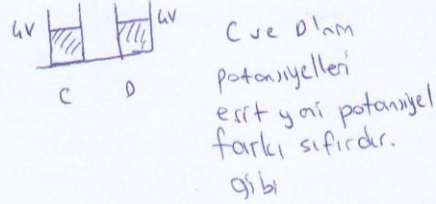 4V
4V
C
D
C ve D'nin
potansiyelleri
eşit yani potansiyel
farkı sıfırdır.
gibi